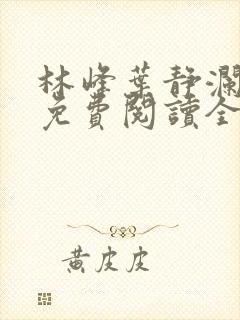 林峰葉静瀾
免費閱讀全
黃皮皮